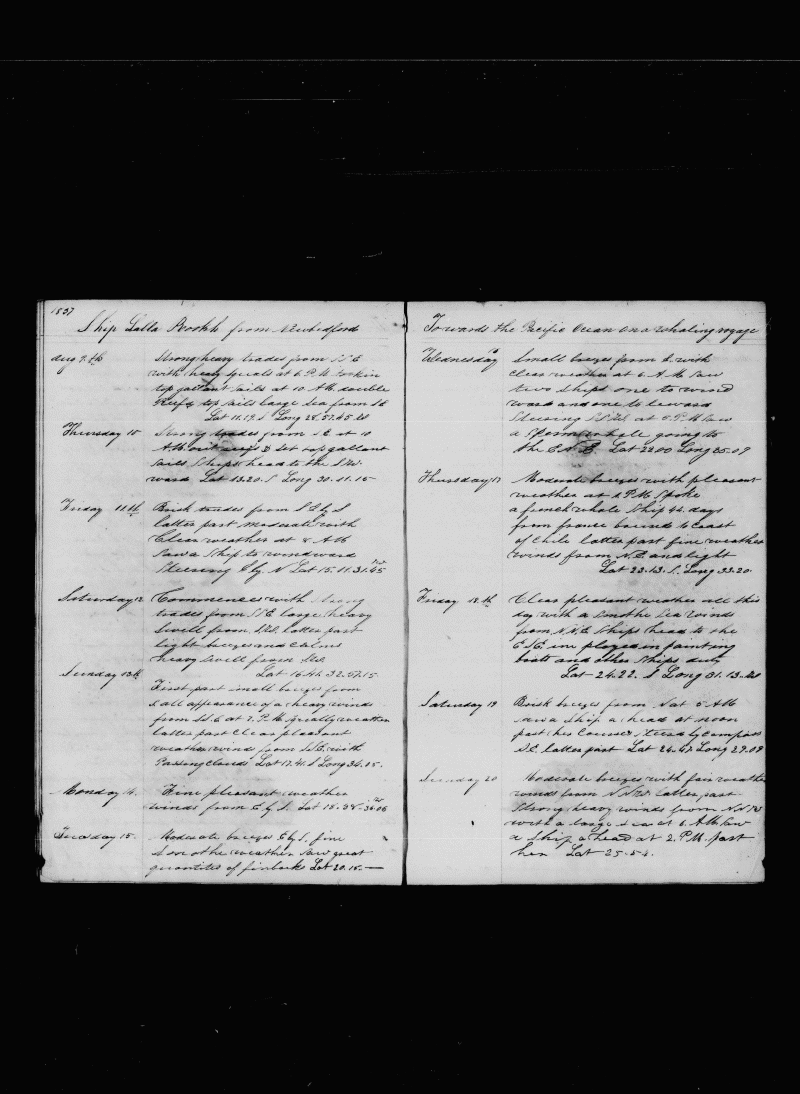 1837
Ship Lalla Rookh from Newbedford
Aug 9.th Strong heavy trades from S.E
with heavy squals at 6 P.M took in
top gallant sails at 10 AM double
Reefd top sails large sea from SE
Lat 11.19 S Long 28.57.45
Thursday 10 Strong trades from S.E at 10
AM out set top gallant
sails Ships head to the SW
ward Lat 13.20. S Long 30.11.15
Friday 11.th Brisk trades from S E by S
latter part moderate with
Clear weather at 8 AM
saw a Ship to windward
Steering by N Lat 15.11.31.45
Saturday 12 Commences with strong
trades from S.E large heavy
swell from SW. latter part
light breezes and calms
heavy swell from SW.
Lat 16.46. 32.57.15
Sunday 13.th First part small breezes from
all appearance of a heavy winds
from at 2. P.M squally weather
latter part Clear pleasant
weather wind from S.E. with
Passing clouds Lat 17.41. S Long 34.05.
Monday 14. Fine pleasant weather
winds from E by S. Lat 18.28. 36.06
Tuesday 15. Moderate breezes E by S. fine
smothe weather saw great
quantites of finbacks Lat 20.15.—
Towards the Pacific Ocean on a whaling voyage
Wednesday 16 Small breezes from with
clear weather at 6 A.M saw
two ships one to wind
ward and one to leward
Steering at P.M saw
a Sperm whale going to
the Lat 22.00 Long 35.09
Thursday 17 Moderate breezes with pleasant
weather at P.M Spoke
a french whale Ship 44 days
from france bound to Coast
of Chile latter part fine weather
winds from N.E. and light
Lat 23.13. S. Long 33.20.
Friday 18.th Clear pleasant weather all this
day with a smothe Sea winds
from N.N.E Ships head to the
E.S.E. imployed in painting
boats and other Ships duty
Lat 24.22. S Long 31.13.
Saturday 19 Brisk breezes from N at 5 AM
saw a Ship a head at noon
past her Course Steerd by Compass
S.E. latter part Lat 24.47 Long 29.09
Sunday 20 Moderate breezes with fair weather
winds from N.N.W. latter part
Strong heavy winds from N.N.W
with a large sea at 6. AM saw
a Ship a head at 2. P.M. past
her Lat 25.54.